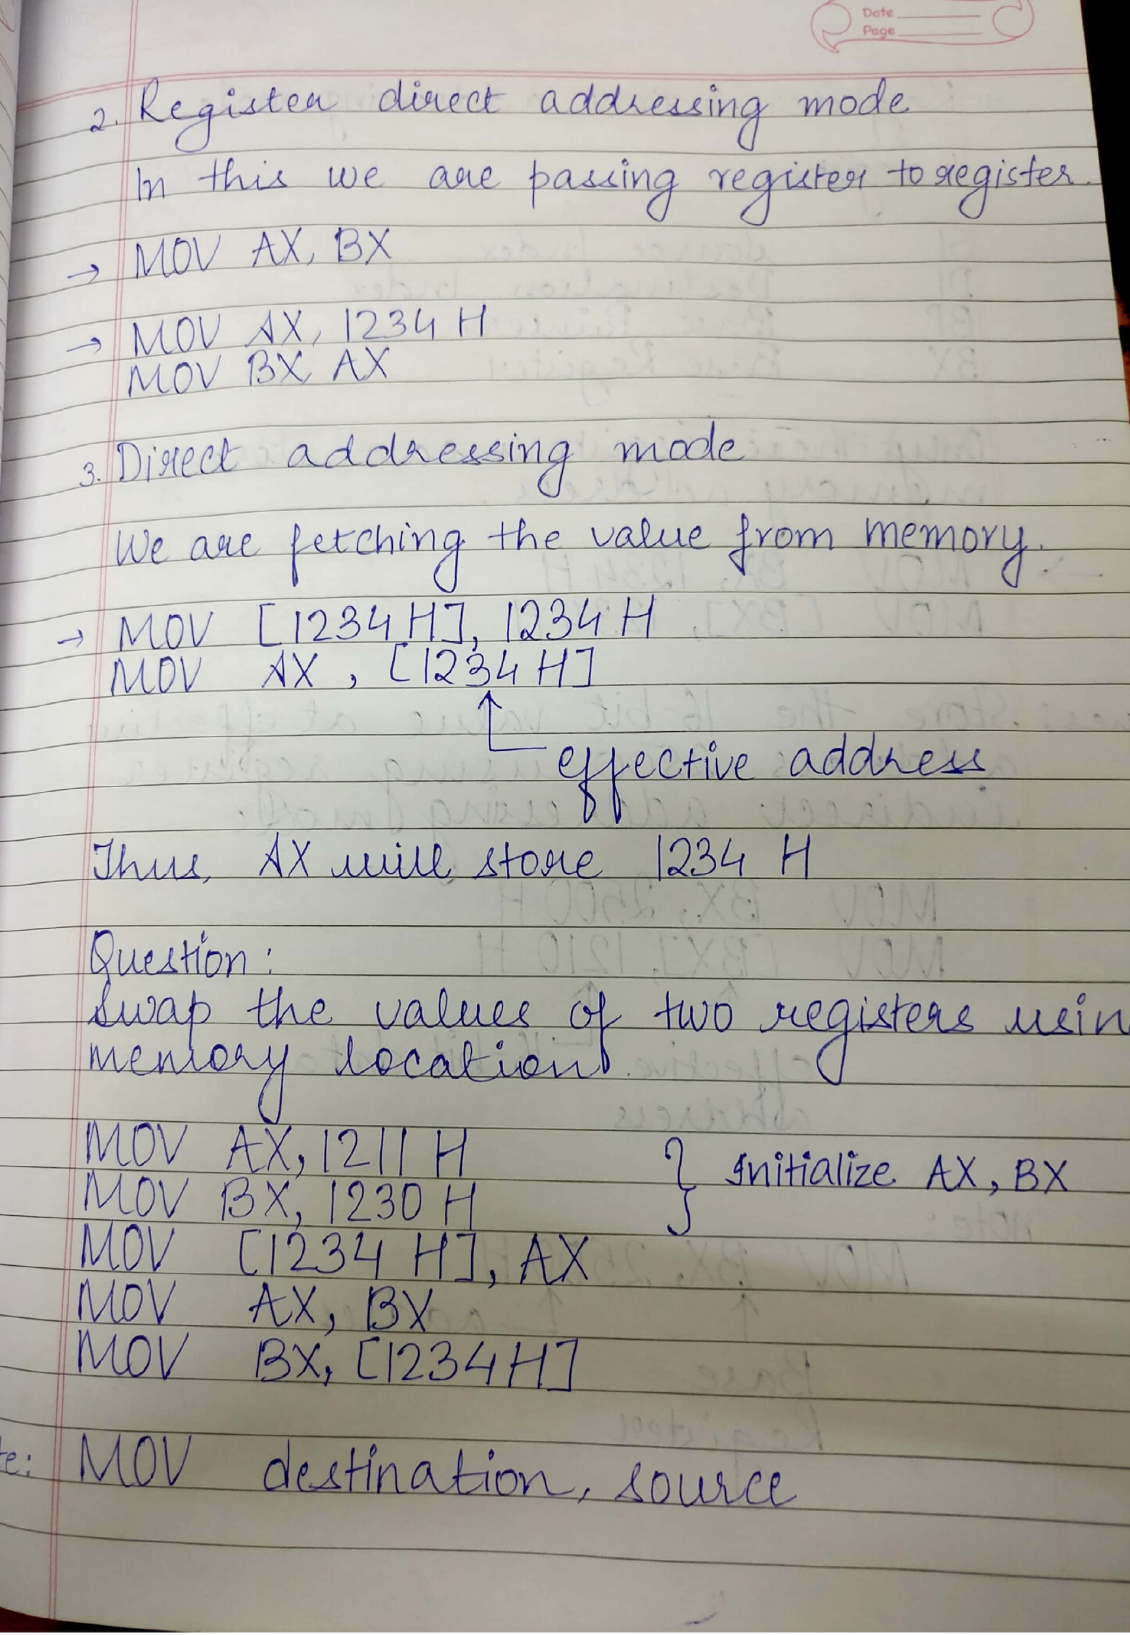 Date
Page
2. Register direct addressing mode
In this we are passing register to register.
→ MOV AX, BX
→ MOV AX, 1234 H
MOV BX, AX
3. Direct addressing mode
We are fetching the value from memory.
→ MOV [1234 H], 1234 H
MOV AX, [1234 H]
effective address
Thus, AX will store 1234 H
Question:
Swap the values of two registers usin
memory location.
MOV AX, 1211 H
MOV BX, 1230 H
} Initialize AX, BX
MOV [1234 H], AX
MOV AX, BX
MOV BX, [1234 H]
te: MOV destination, source